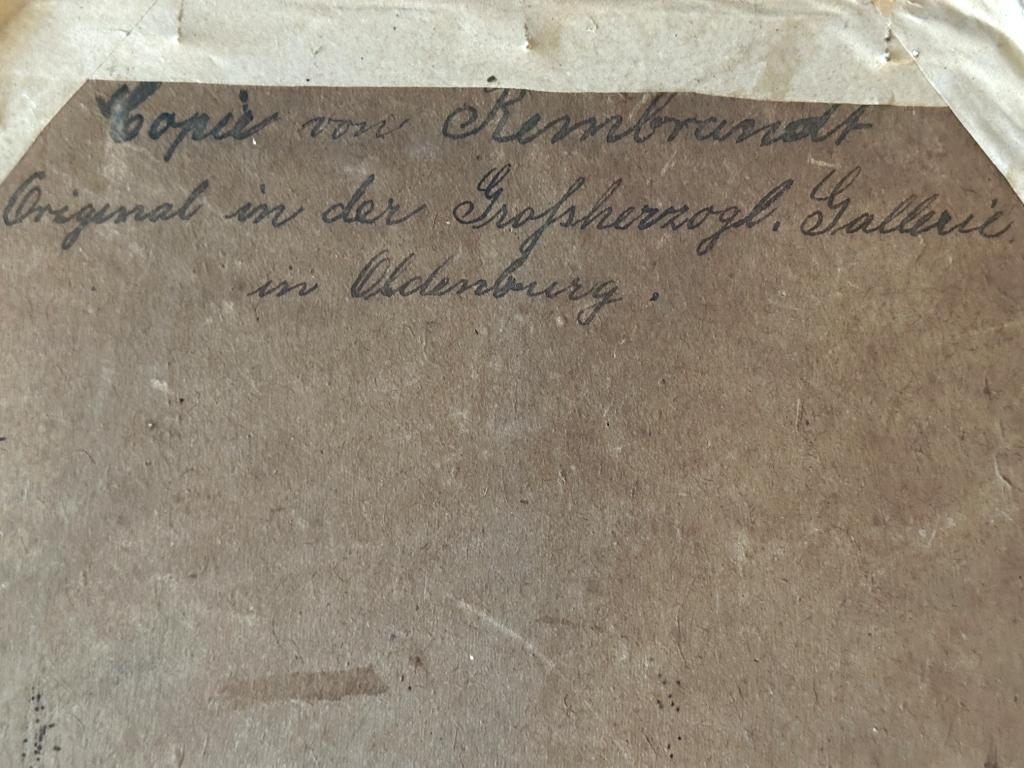 Copie von Rembrandt
Original in der Großherzogl. Gallerie
in Oldenburg.